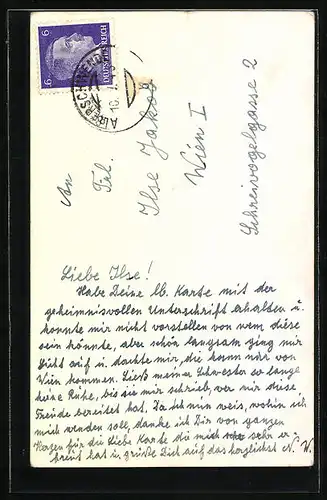 6
6
DEUTSCHES REICH
An
Frl.
Ilse Jakos
Wien I
Schreivogelgasse 2
Liebe Ilse!
Habe Deine lb. Karte mit der
geheimnisvollen Unterschrift erhalten u.
konnte mir nicht vorstellen von wem diese
sein könnte, aber schön langsam ging mir
Licht auf u. dachte mir, die kann nur von
Wien kommen. Ließ meiner Schwester so lange
keine Ruhe, bis sie mir schrieb, wer mir diese
Freude bereitet hat. Da ich nun weis, wohin ich
mich wenden soll, danke ich Dir von ganzen
Herzen für die Liebe Karte die mich sehr er-
freut hat u. grüße Dich auf das herzlichst N. W.